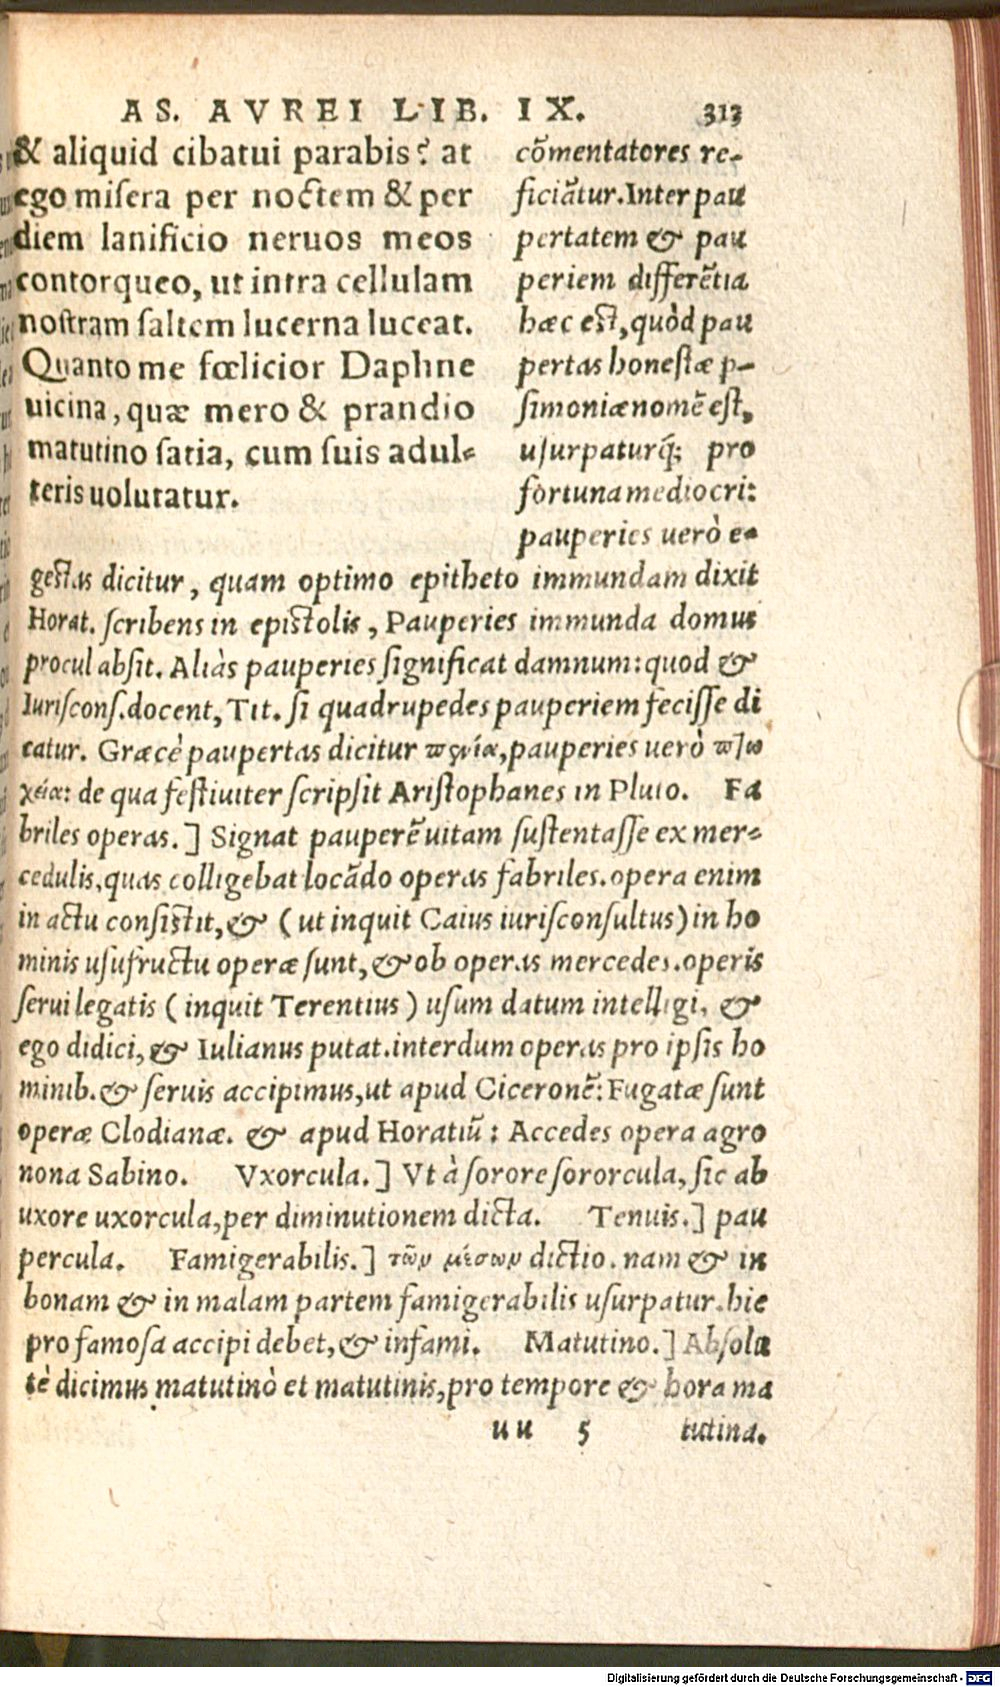 AS. AVREI LIB. IX. 313
& aliquid cibatui parabis? at
ego misera per noctem & per
diem lanificio neruos meos
contorqueo, ut intra cellulam
nostram saltem lucerna luceat.
Quanto me fœlicior Daphne
uicina, quæ mero & prandio
matutino satia, cum suis adul-
teris uolutatur.
cōmentatores re-
ficiātur. Inter pau
pertatem & pau
periem differētia
hæc est, quòd pau
pertas honestæ p-
simoniæ nomē est,
usurpaturq́; pro
fortuna mediocri:
pauperies uerò e-
gestas dicitur, quam optimo epitheto immundam dixit
Horat. scribens in epistolis, Pauperies immunda domus
procul absit. Aliàs pauperies significat damnum: quod &
Iuriscons. docent, Tit. si quadrupedes pauperiem fecisse di
catur. Græcè paupertas dicitur πενία, pauperies uerò πτω
χεία: de qua festiuiter scripsit Aristophanes in Pluto. Fa
briles operas.] Signat pauperē uitam sustentasse ex mer-
cedulis, quas colligebat locādo operas fabriles. opera enim
in actu consistit, & (ut inquit Caius iurisconsultus) in ho
minis usufructu operæ sunt, & ob operas mercedes. operis
serui legatis (inquit Terentius) usum datum intelligi, &
ego didici, & Iulianus putat. interdum operas pro ipsis ho
minib. & seruis accipimus, ut apud Ciceronē: Fugatæ sunt
operæ Clodianæ. & apud Horatiū: Accedes opera agro
nona Sabino. Vxorcula.] Vt à sorore sororcula, sic ab
uxore uxorcula, per diminutionem dicta. Tenuis.] pau
percula. Famigerabilis.] τῶν μέσων dictio. nam & in
bonam & in malam partem famigerabilis usurpatur. hic
pro famosa accipi debet, & infami. Matutino.] Absolu
tè dicimus matutinò et matutinis, pro tempore & hora ma
uu 5 tutina.
Digitalisierung gefördert durch die Deutsche Forschungsgemeinschaft - DFG